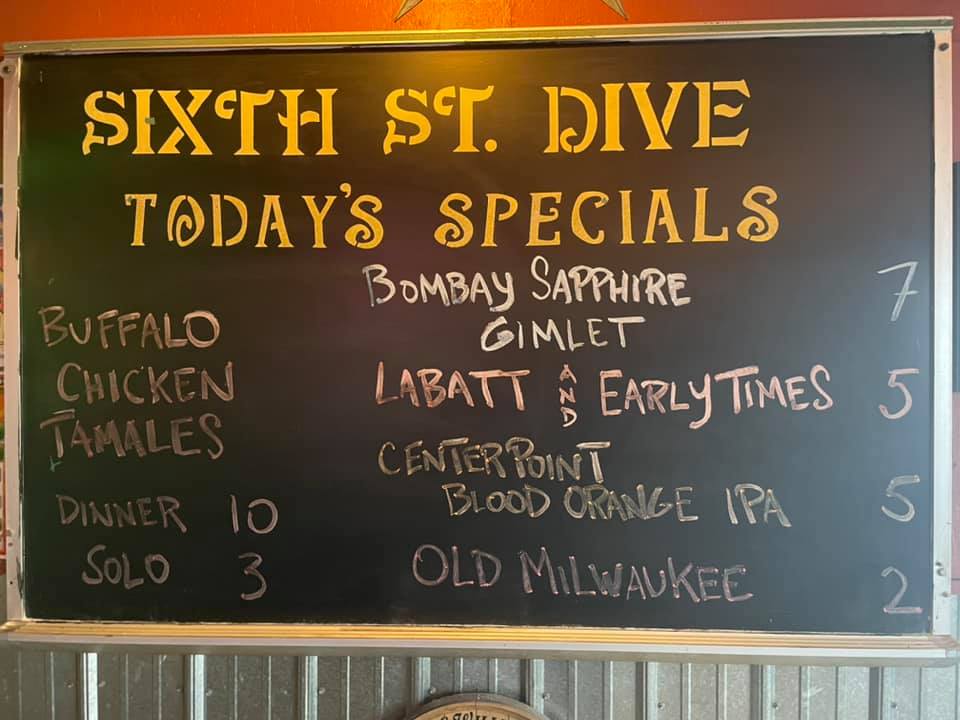 SIXTH ST. DIVE
TODAY'S SPECIALS
BUFFALO
CHICKEN
TAMALES
DINNER 10
SOLO 3
BOMBAY SAPPHIRE 7
GIMLET
LABATT AND EARLY TIMES 5
CENTERPOINT
BLOOD ORANGE IPA 5
OLD MILWAUKEE 2